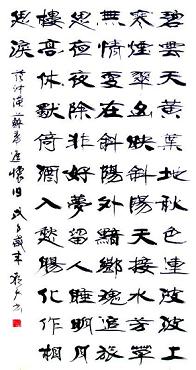 碧雲天黃葉地秋色連波波上
寒煙翠山映斜陽天接水芳草
無情更在斜陽外黯鄉魂追旅
思夜夜除非好夢留人睡明月
樓高休獨倚酒入愁腸化作相
思淚
范仲淹蘇幕遮懷舊 戊子歲末